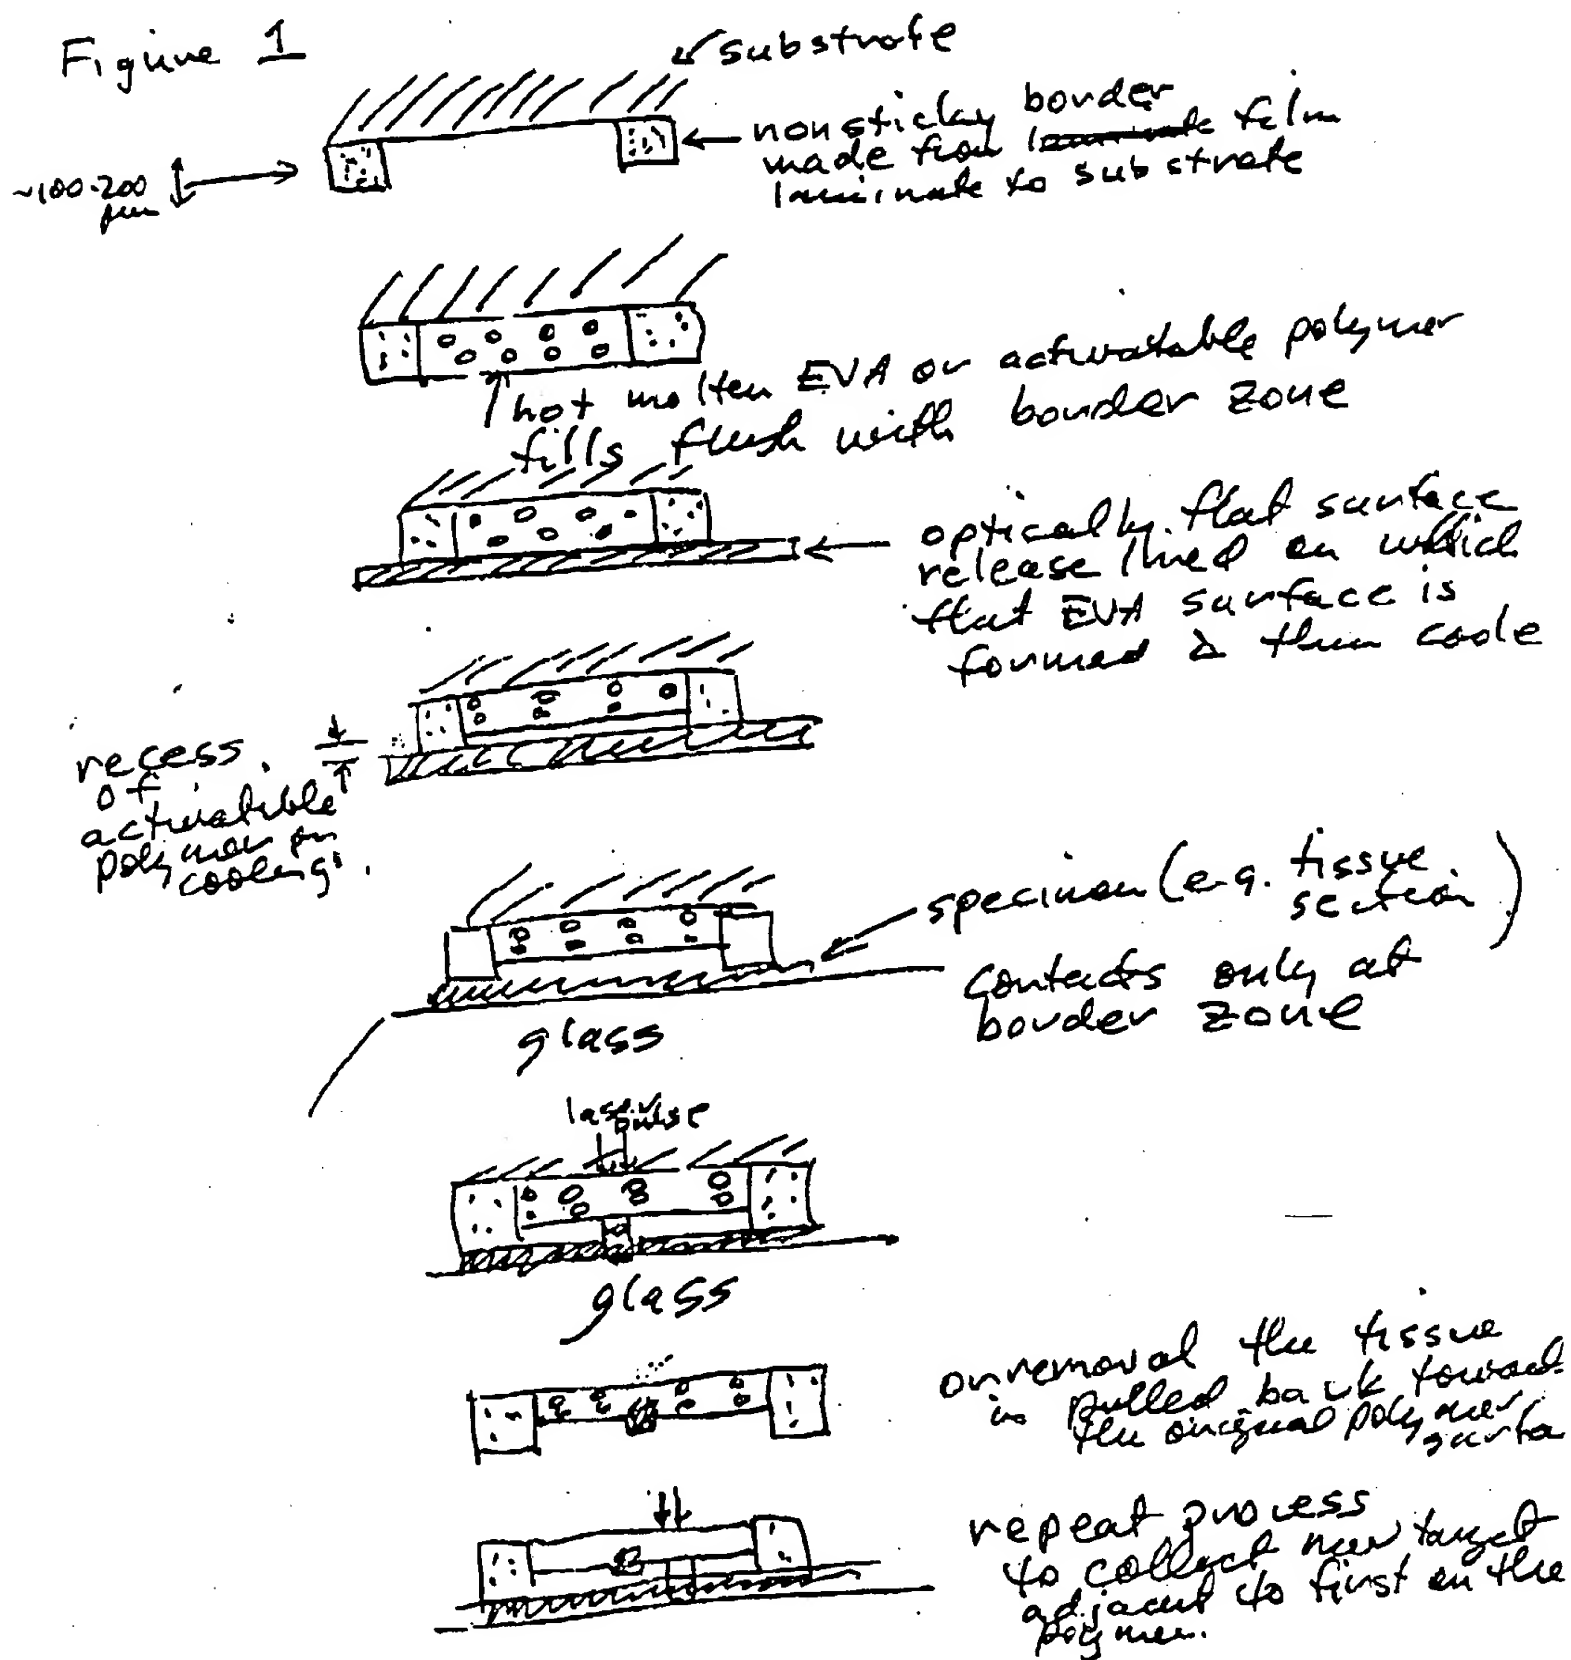 Figure 1
substrate
nonsticky border
made from laminate film
laminate to substrate
~100-200
µm
hot molten EVA or activatable polymer
fills flush with border zone
optically flat surface
release lined on which
flat EVA surface is
formed & then coole
recess
of
activatible
polymer on
cooling
specimen (e.g. tissue
section)
contacts only at
border zone
glass
laser pulse
glass
on removal the tissue
is pulled back toward
the original polymer
surfa
repeat process
to collect new target
adjacent to first on the
polymer.